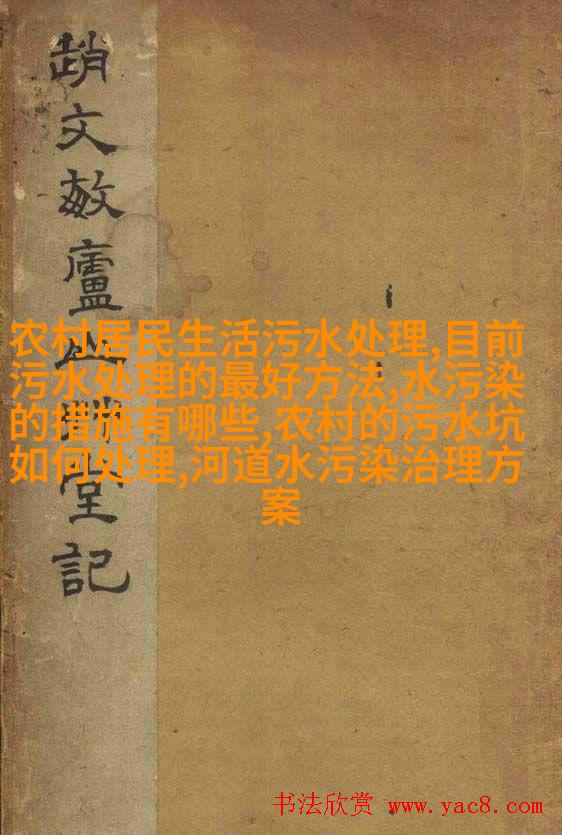 趙文敏廬山堂記
农村居民生活污水处理,目前
污水处理的最好方法,水污染
的措施有哪些,农村的污水坑
如何处理,河道水污染治理方
案
书法欣赏 www.yac8.com